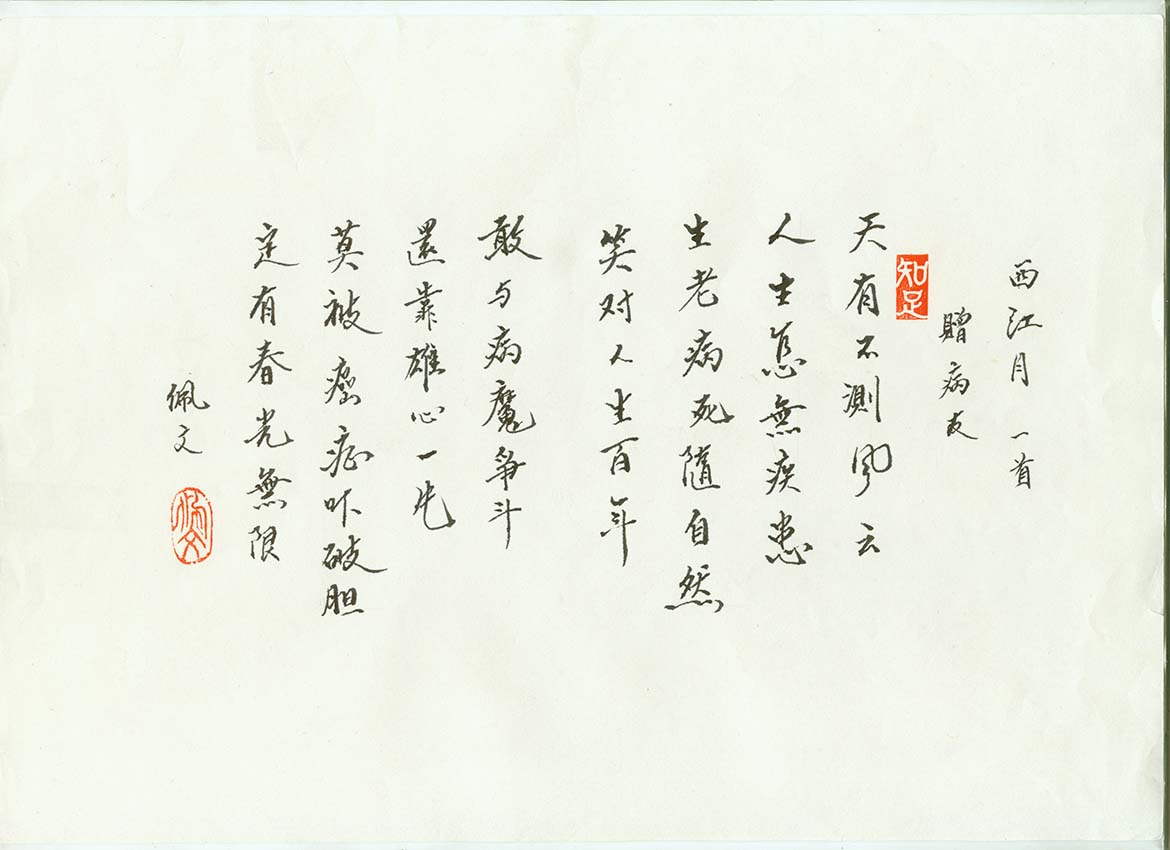 西江月 一首
贈病友
知足
天有不測风云
人生怎無疾患
生老病死隨自然
笑对人生百年
敢与病魔爭斗
還靠雄心一片
莫被癌症吓破胆
定有春光無限
佩文
佩文